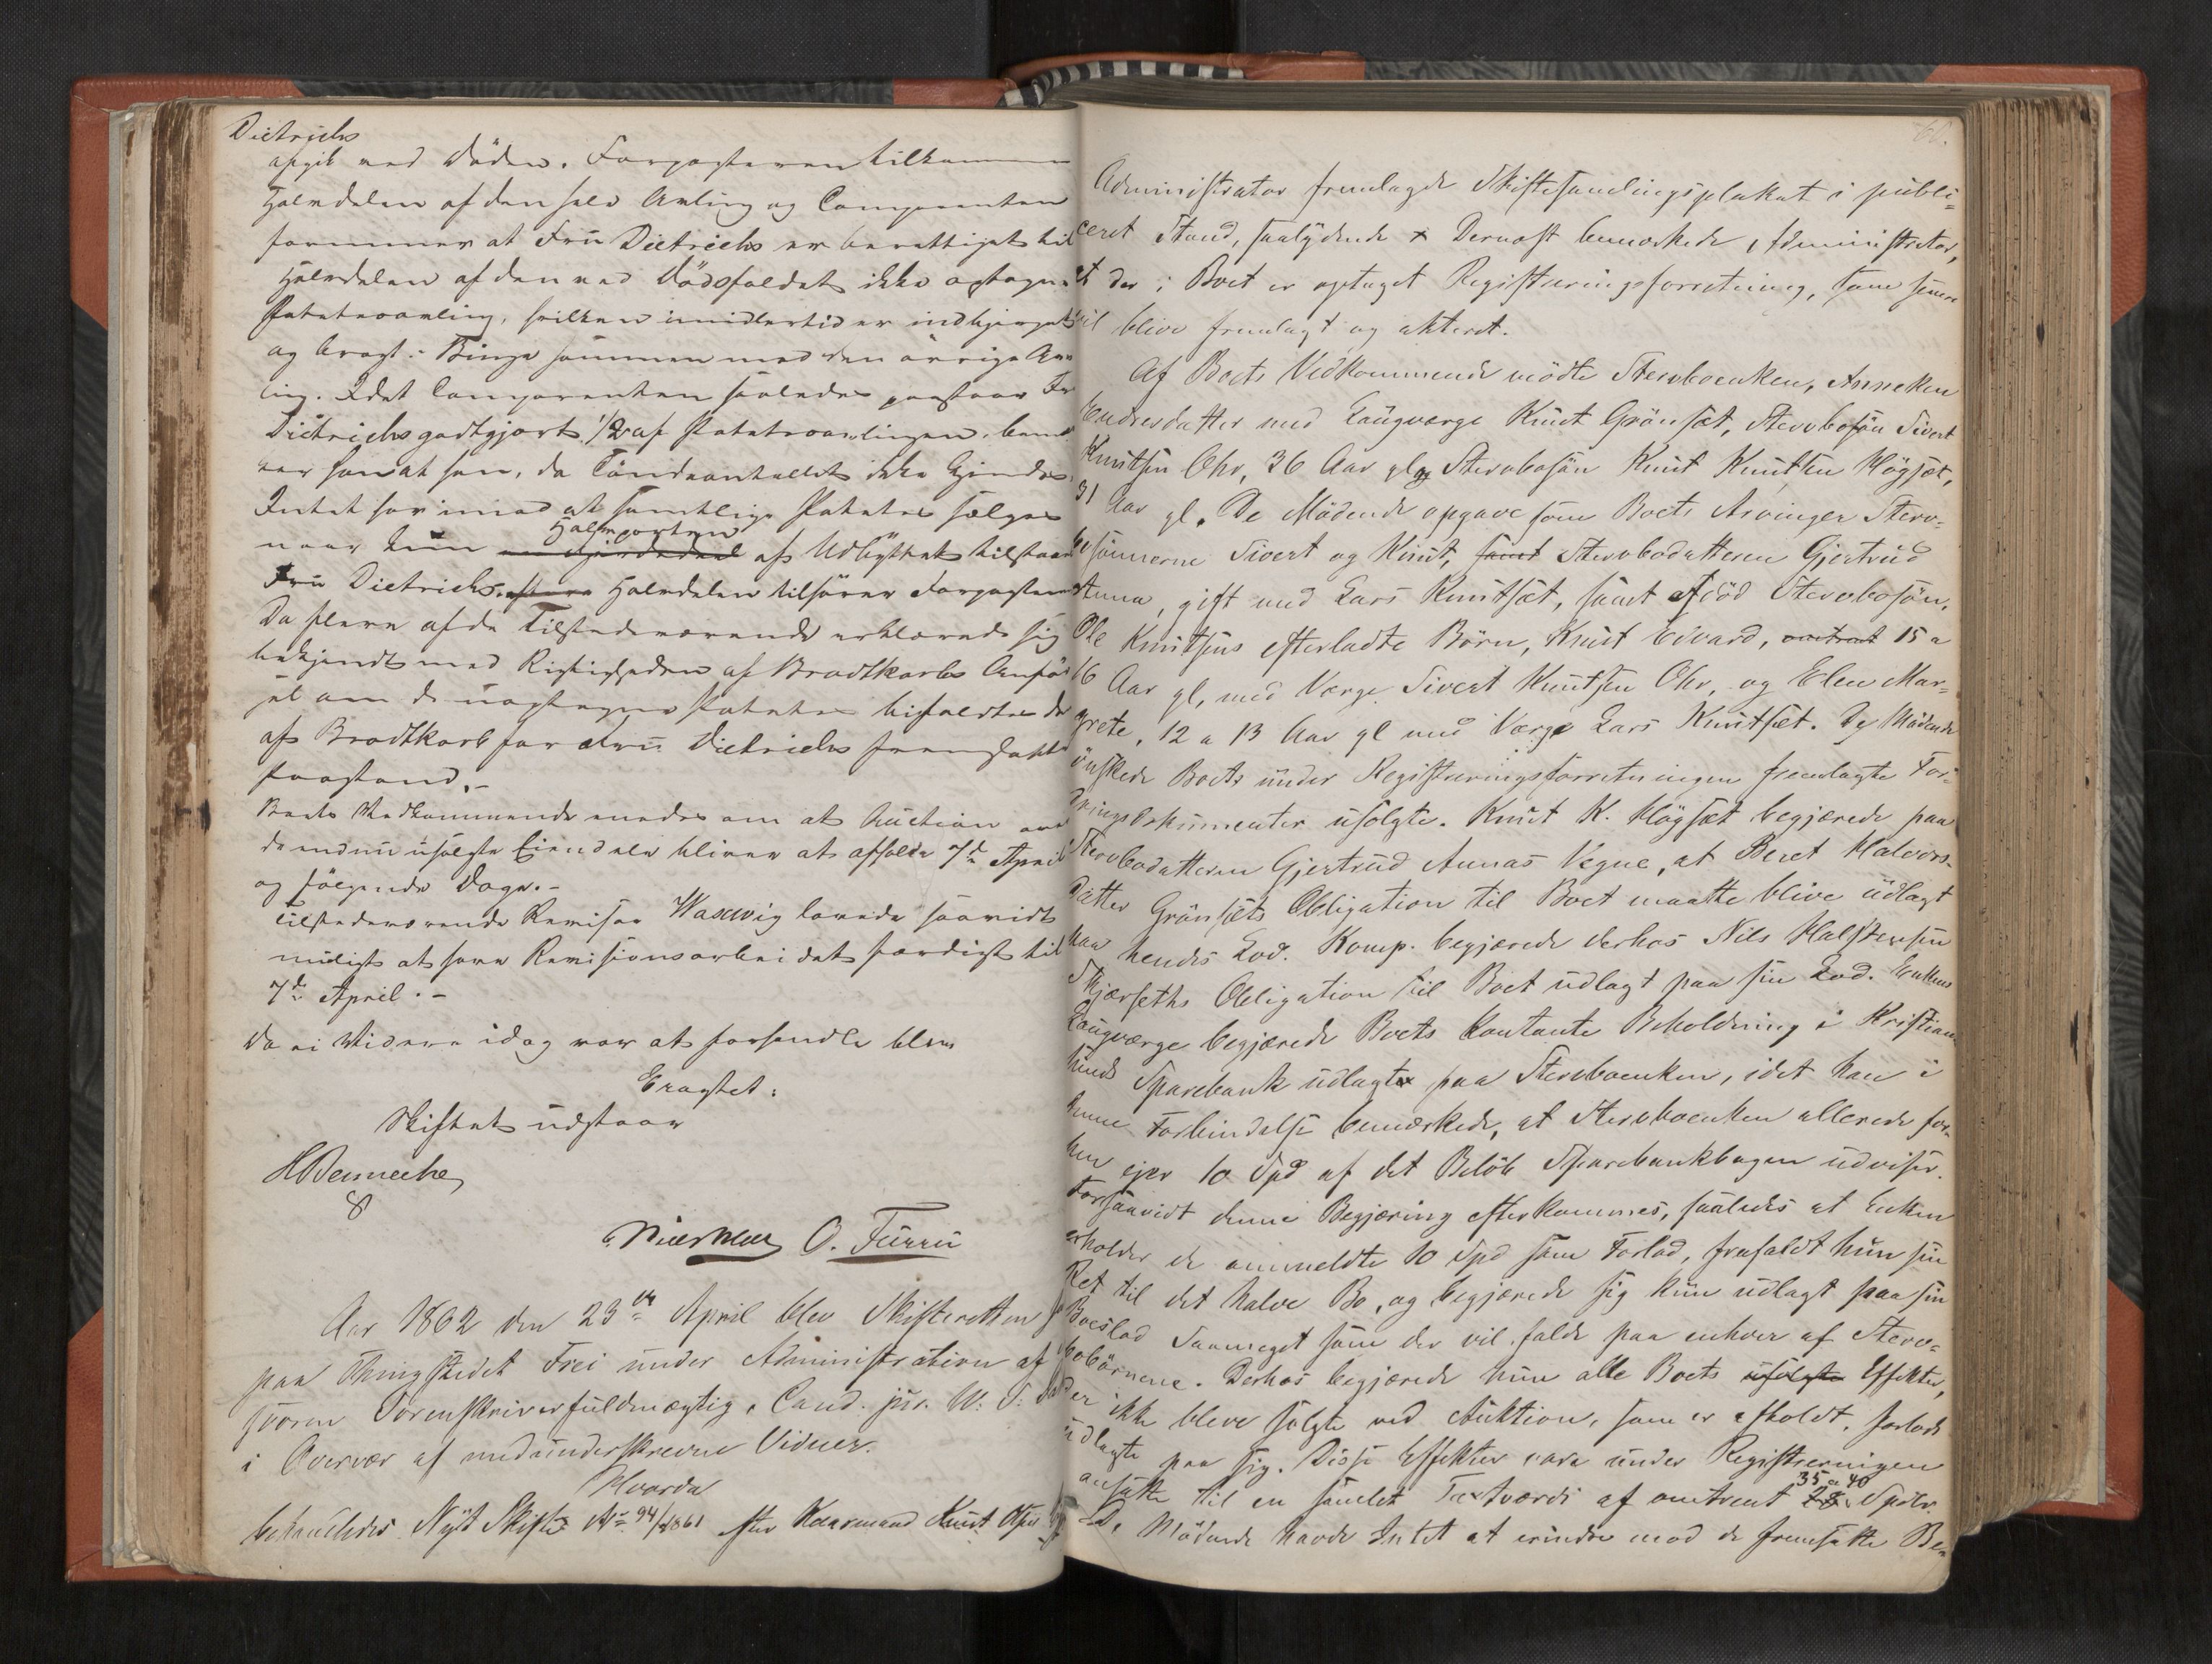 Dietrichs
afgik ved Döden. Forpagteren tilkommer
Halvdelen af den hele Avling og Comparenten
formener at Fru Dietrichs er berettiget til
Halvdelen af den ved Dödsfaldet ikke optagne
Potetesavling, hvilken imidlertid er indhjerget
og bragt i Binge sammen med den övrige Av
ling. Idet Comparenten saaledes paastaar Fru
Dietrichs godtgjort 1/2 af Potetesavlingen, bemær
ker han at han, da Töndeantallet ikke kjendes
Intet har imod at samtlige Poteter sælges
naar kun Halvparten af Udbyttet tilstaaes
Fru Dietrichs, Halvdelen tilhörer Forpagteren
Da flere af de Tilstedeværende erklærede sig
bekjendt med Rigtigheden af Brodtkorbs Anför
sel om de uoptagne Poteter bifaldtes den
af Brodtkorb for Fru Dietrichs fremsatte
Paastand.-
Boets Vedkommende enedes om at Auction over
de endnu usolgte Eiendele bliver at afholde 7de April
og fölgende Dage.-
Tilstedeværende Revisor Waserig lovede saavidt
muligt at have Revisionsarbeidet færdigt til
7de April.-
Da ei Videre idag var at forhandle blev
Eragtet:
Skiftet udstaar
HBennecke
O. Furru
Aar 1862 den 23de April blev Skifteretten
paa Thingstedet Frei under Administration af
svoren Sorenskriverfuldmægtig, Cand. jur. W. S.
i Overvær af medunderskrevne Vidner.
Hvorda
behandledes Nyt Skifte No 94/1861 efter Kaarmand Knut Olsen
60.
Administrator fremlagde Skiftesamlingsplakat i publi=
ceret Stand, saalydende x Dernæst bemærkede Administrator,
at der i Boet er optaget Registreringsforretning, som senere
vil blive fremlagt og akteret.
Af Boets Vedkommende mödte Stervboenken, Anneken
Endresdatter med Laugværge Knut Grönsæt, Stervbosön Sivert
Knutsen Ohr, 36 Aar gl og Stervbosön Knut Knutsen Högsæt,
31 Aar gl. De Mödende opgave som Boets Arvinger Sterv=
bosönnerne Sivert og Knut, samt Stervbodatteren Gjertrud
Anna, gift med Lars Knutsæt, samt afdöd Stervbosön,
Ole Knutsens efterladte Börn, Knut Edvard, omtrent 15 a
16 Aar gl, med Værge Sivert Knutsen Ohr, og Elen Mar=
grete, 12 a 13 Aar gl med Værge Lars Knutsæt. De Mödende
önskede Boets under Registreringsforretningen fremlagte For=
dringsdokumenter usolgte. Knut K. Högsæt begjærede paa
Stervbodatteren Gjertrud Annas Vegne, at Beret Halvors=
datter Grönsæts Obligation til Boet maatte blive udlagt
paa hendes Lod. Komp. begjærede derhos Nils Halstensen
Skjærsæths Obligation til Boet udlagt paa sin Lod. Enkens
Laugværge begjærede Boets kontante Beholdning i Kristian
sunds Sparebank udlagt paa Stervboenken, idet han i
denne Forbindelse bemærkede, at Stervboenken allerede for=
hen ejer 10 Spd af det Belöb Sparebankbogen udviser.
Forsaavidt denne Begjæring efterkommes, saaledes at Enken
erholder de anmeldte 10 Spd som Forlod, frafaldt hun sin
Ret til det halve Bo, og begjærede sig kun udlagt paa sin
Boeslod Saameget som der vil falde paa enhver af Sterv=
bobörnene. Derhos begjærede hun alle Boets usolgte Effekter,
der ikke bleve solgte ved Auktion, som er afholdt, forlods
udlagte paa sig. Disse Effekter vare under Registreringen
ansatte til en samlet Taxtværdi af omtrent 35 a 40 Spdlr.
De Mödende havde Intet at erindre mod de fremsatte Be=